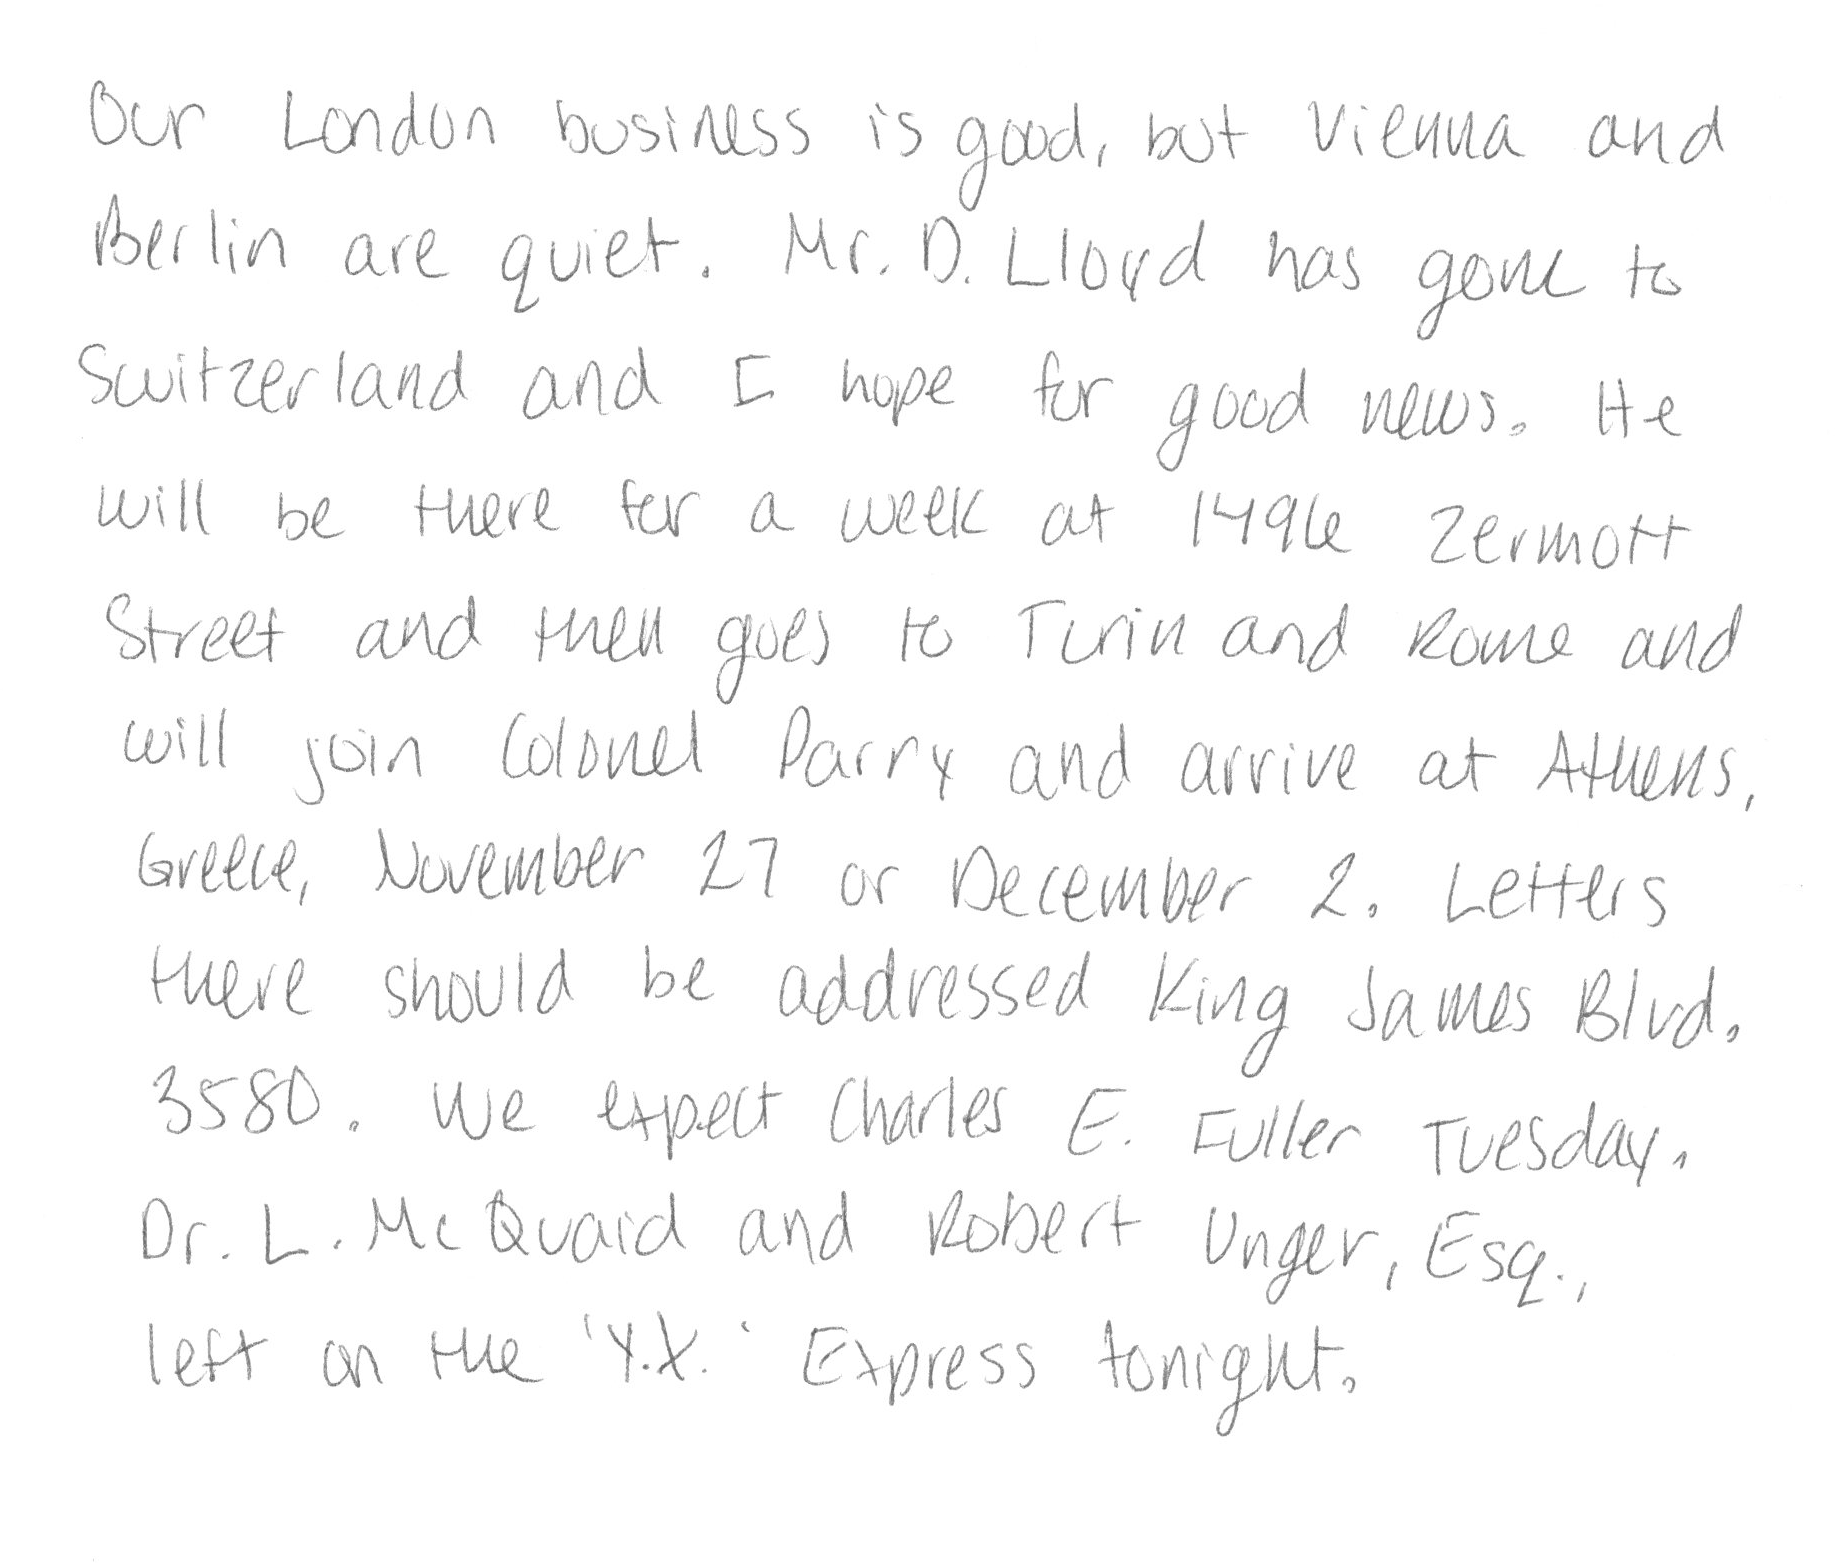 Our London business is good, but Vienna and
Berlin are quiet. Mr. D. Lloyd has gone to
Switzerland and I hope for good news. He
will be there for a week at 1496 Zermott
Street and then goes to Turin and Rome and
will join Colonel Parry and arrive at Athens,
Greece, November 27 or December 2. Letters
there should be addressed King James Blvd.
3580. We expect Charles E. Fuller Tuesday.
Dr. L. McQuaid and Robert Unger, Esq.,
left on the 'Y.X.' Express tonight.